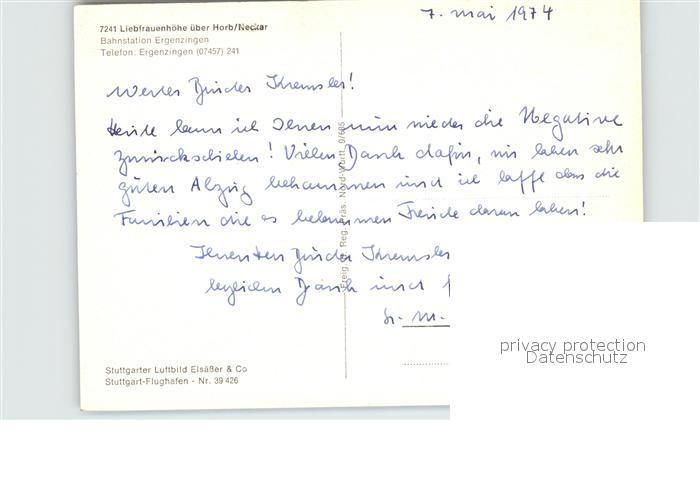 7. mai 1974
7241 Liebfrauenhöhe über Horb/Neckar
Bahnstation Ergenzingen
Telefon: Ergenzingen (07457) 241
Werter Bruder Kremsler!
Heute kann ich Ihnen nun wieder die Negative
zurückschicken! Vielen Dank dafür, wir haben sehr
guten Abzug bekommen und ich hoffe dass die
Familien die es bekommen Freude daran haben!
Ihnen Bruder Kremsler
herzlichen Dank und
Sr. M.
Freig. d. Reg. Präs. Nord-Württ. 9/
Stuttgarter Luftbild Elsäßer & Co
Stuttgart-Flughafen - Nr. 39 426
privacy protection
Datenschutz